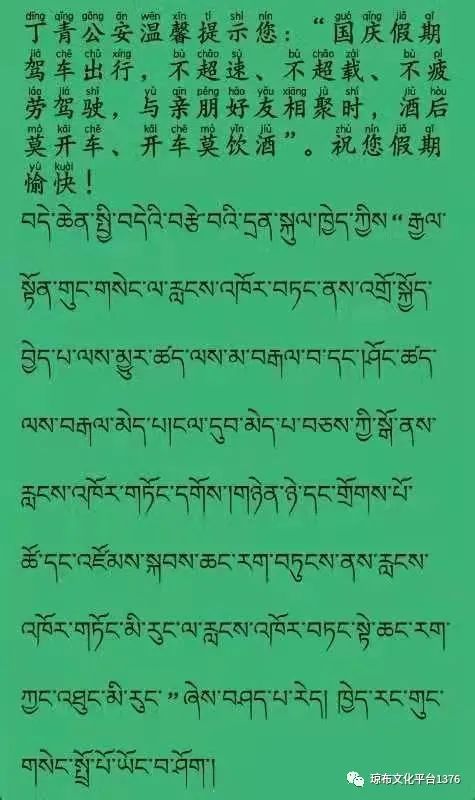 dīng qīng gōng ān wēn xīn tí shì nín guó qìng jiǎ qī
丁青公安温馨提示您：“国庆假期
jià chē chū xíng bù chāo sù bù chāo zǎi bù pí
驾车出行，不超速、不超载、不疲
láo jià shǐ yǔ qīn péng hǎo yǒu xiāng jù shí jiǔ hòu
劳驾驶，与亲朋好友相聚时，酒后
mò kāi chē kāi chē mò yǐn jiǔ zhù nín jiǎ qī
莫开车、开车莫饮酒”。祝您假期
yú kuài
愉快！
བདེ་ཆེན་སྤྱི་བདེའི་བརྩེ་བའི་དྲན་སྐུལ་ཁྱེད་ཀྱིས“རྒྱལ་
སྟོན་གུང་གསེང་ལ་རླངས་འཁོར་བཏང་ནས་འགྲོ་སྐྱོད་
བྱེད་པ་ལས་མྱུར་ཚད་ལས་མ་བརྒལ་བ་དང་།ཤོང་ཚད་
ལས་བརྒལ་མེད་པ།ངལ་དུབ་མེད་པ་བཅས་ཀྱི་སྒོ་ནས་
རླངས་འཁོར་གཏོང་དགོས་།གཉེན་ཉེ་དང་གྲོགས་པོ་
ཚོ་དང་འཛོམས་སྐབས་ཆང་རག་བཏུངས་ནས་རླངས་
འཁོར་གཏོང་མི་རུང་ལ་རླངས་འཁོར་བཏང་སྟེ་ཆང་རག་
ཀྱང་འཐུང་མི་རུང་”ཞེས་བཤད་པ་རེད། ཁྱེད་རང་གུང་
གསེང་སྤྲོ་པོ་ཡོང་བ་ཤོག་།
琼布文化平台1376